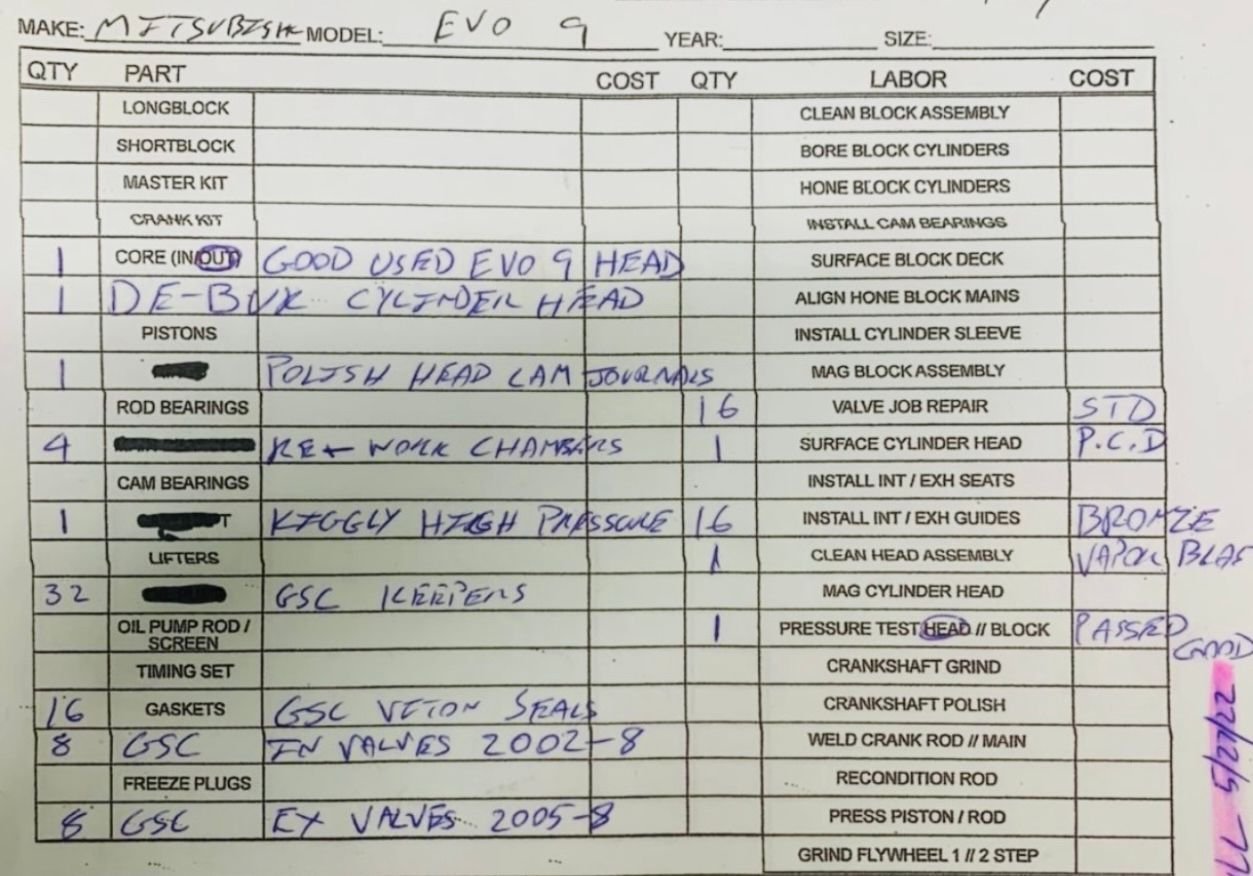 MAKE: MITSUBISHI MODEL: EVO 9 YEAR: SIZE:
QTY PART COST QTY LABOR COST
LONGBLOCK CLEAN BLOCK ASSEMBLY
SHORTBLOCK BORE BLOCK CYLINDERS
MASTER KIT HONE BLOCK CYLINDERS
CRANK KIT INSTALL CAM BEARINGS
1 CORE (IN/OUT) GOOD USED EVO 9 HEAD SURFACE BLOCK DECK
1 DE-BUR CYLINDER HEAD ALIGN HONE BLOCK MAINS
PISTONS INSTALL CYLINDER SLEEVE
1 POLISH HEAD CAM JOURNALS MAG BLOCK ASSEMBLY
ROD BEARINGS 16 VALVE JOB REPAIR STD
4 RE-WORK CHAMBERS 1 SURFACE CYLINDER HEAD P.C.D
CAM BEARINGS INSTALL INT / EXH SEATS
1 T KIGGLY HIGH PRESSURE 16 INSTALL INT / EXH GUIDES BRONZE
LIFTERS 1 CLEAN HEAD ASSEMBLY VAPOR BLAS
32 GSC KEEPERS MAG CYLINDER HEAD
OIL PUMP ROD / SCREEN 1 PRESSURE TEST HEAD // BLOCK PASSED GOOD
TIMING SET CRANKSHAFT GRIND
16 GASKETS GSC VITON SEALS CRANKSHAFT POLISH
8 GSC IN VALVES 2002-8 WELD CRANK ROD // MAIN
FREEZE PLUGS RECONDITION ROD
8 GSC EX VALVES 2005-8 PRESS PISTON / ROD
GRIND FLYWHEEL 1 // 2 STEP
5/27/22